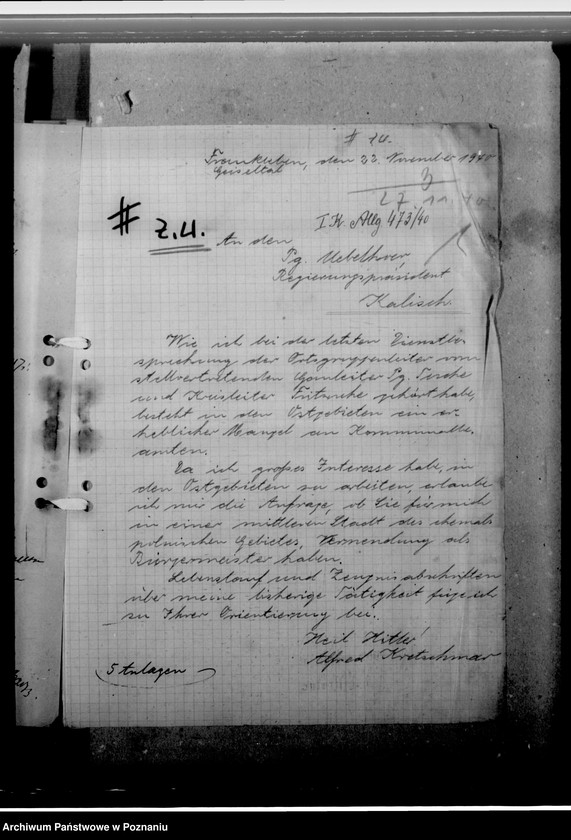 # z.U.
Frankleben, den 22. November 1940
Geiseltal
3
27. 11. 40
I.K. Allg 473/40
# z.U.
An den
Pg. Uebelhoer,
Regierungspräsident
Kalisch.
Wie ich bei der letzten Dienstbe-
sprechung der Ortsgruppenleiter vom
stellvertretenden Gauleiter Pg. Tesche
und Kreisleiter Fritzsche gehört habe,
besteht in den Ostgebieten ein er-
heblicher Mangel an Kommunalbe-
amten.
Da ich großes Interesse habe, in
den Ostgebieten zu arbeiten, erlaube
ich mir die Anfrage, ob Sie für mich
in einer mittleren Stadt des ehemals
polnischen Gebietes, Verwendung als
Bürgermeister haben.
Lebenslauf und Zeugnisabschriften
über meine bisherige Tätigkeit füge ich
zu Ihrer Orientierung bei.
Heil Hitler!
Alfred Kretschmar
5 Anlagen
Archiwum Państwowe w Poznaniu